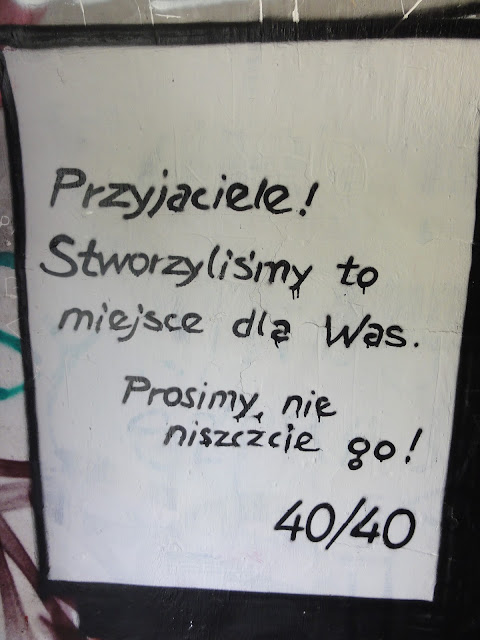 Przyjaciele!
Stworzyliśmy to
miejsce dla Was.
Prosimy, nie
niszczcie go!
40/40